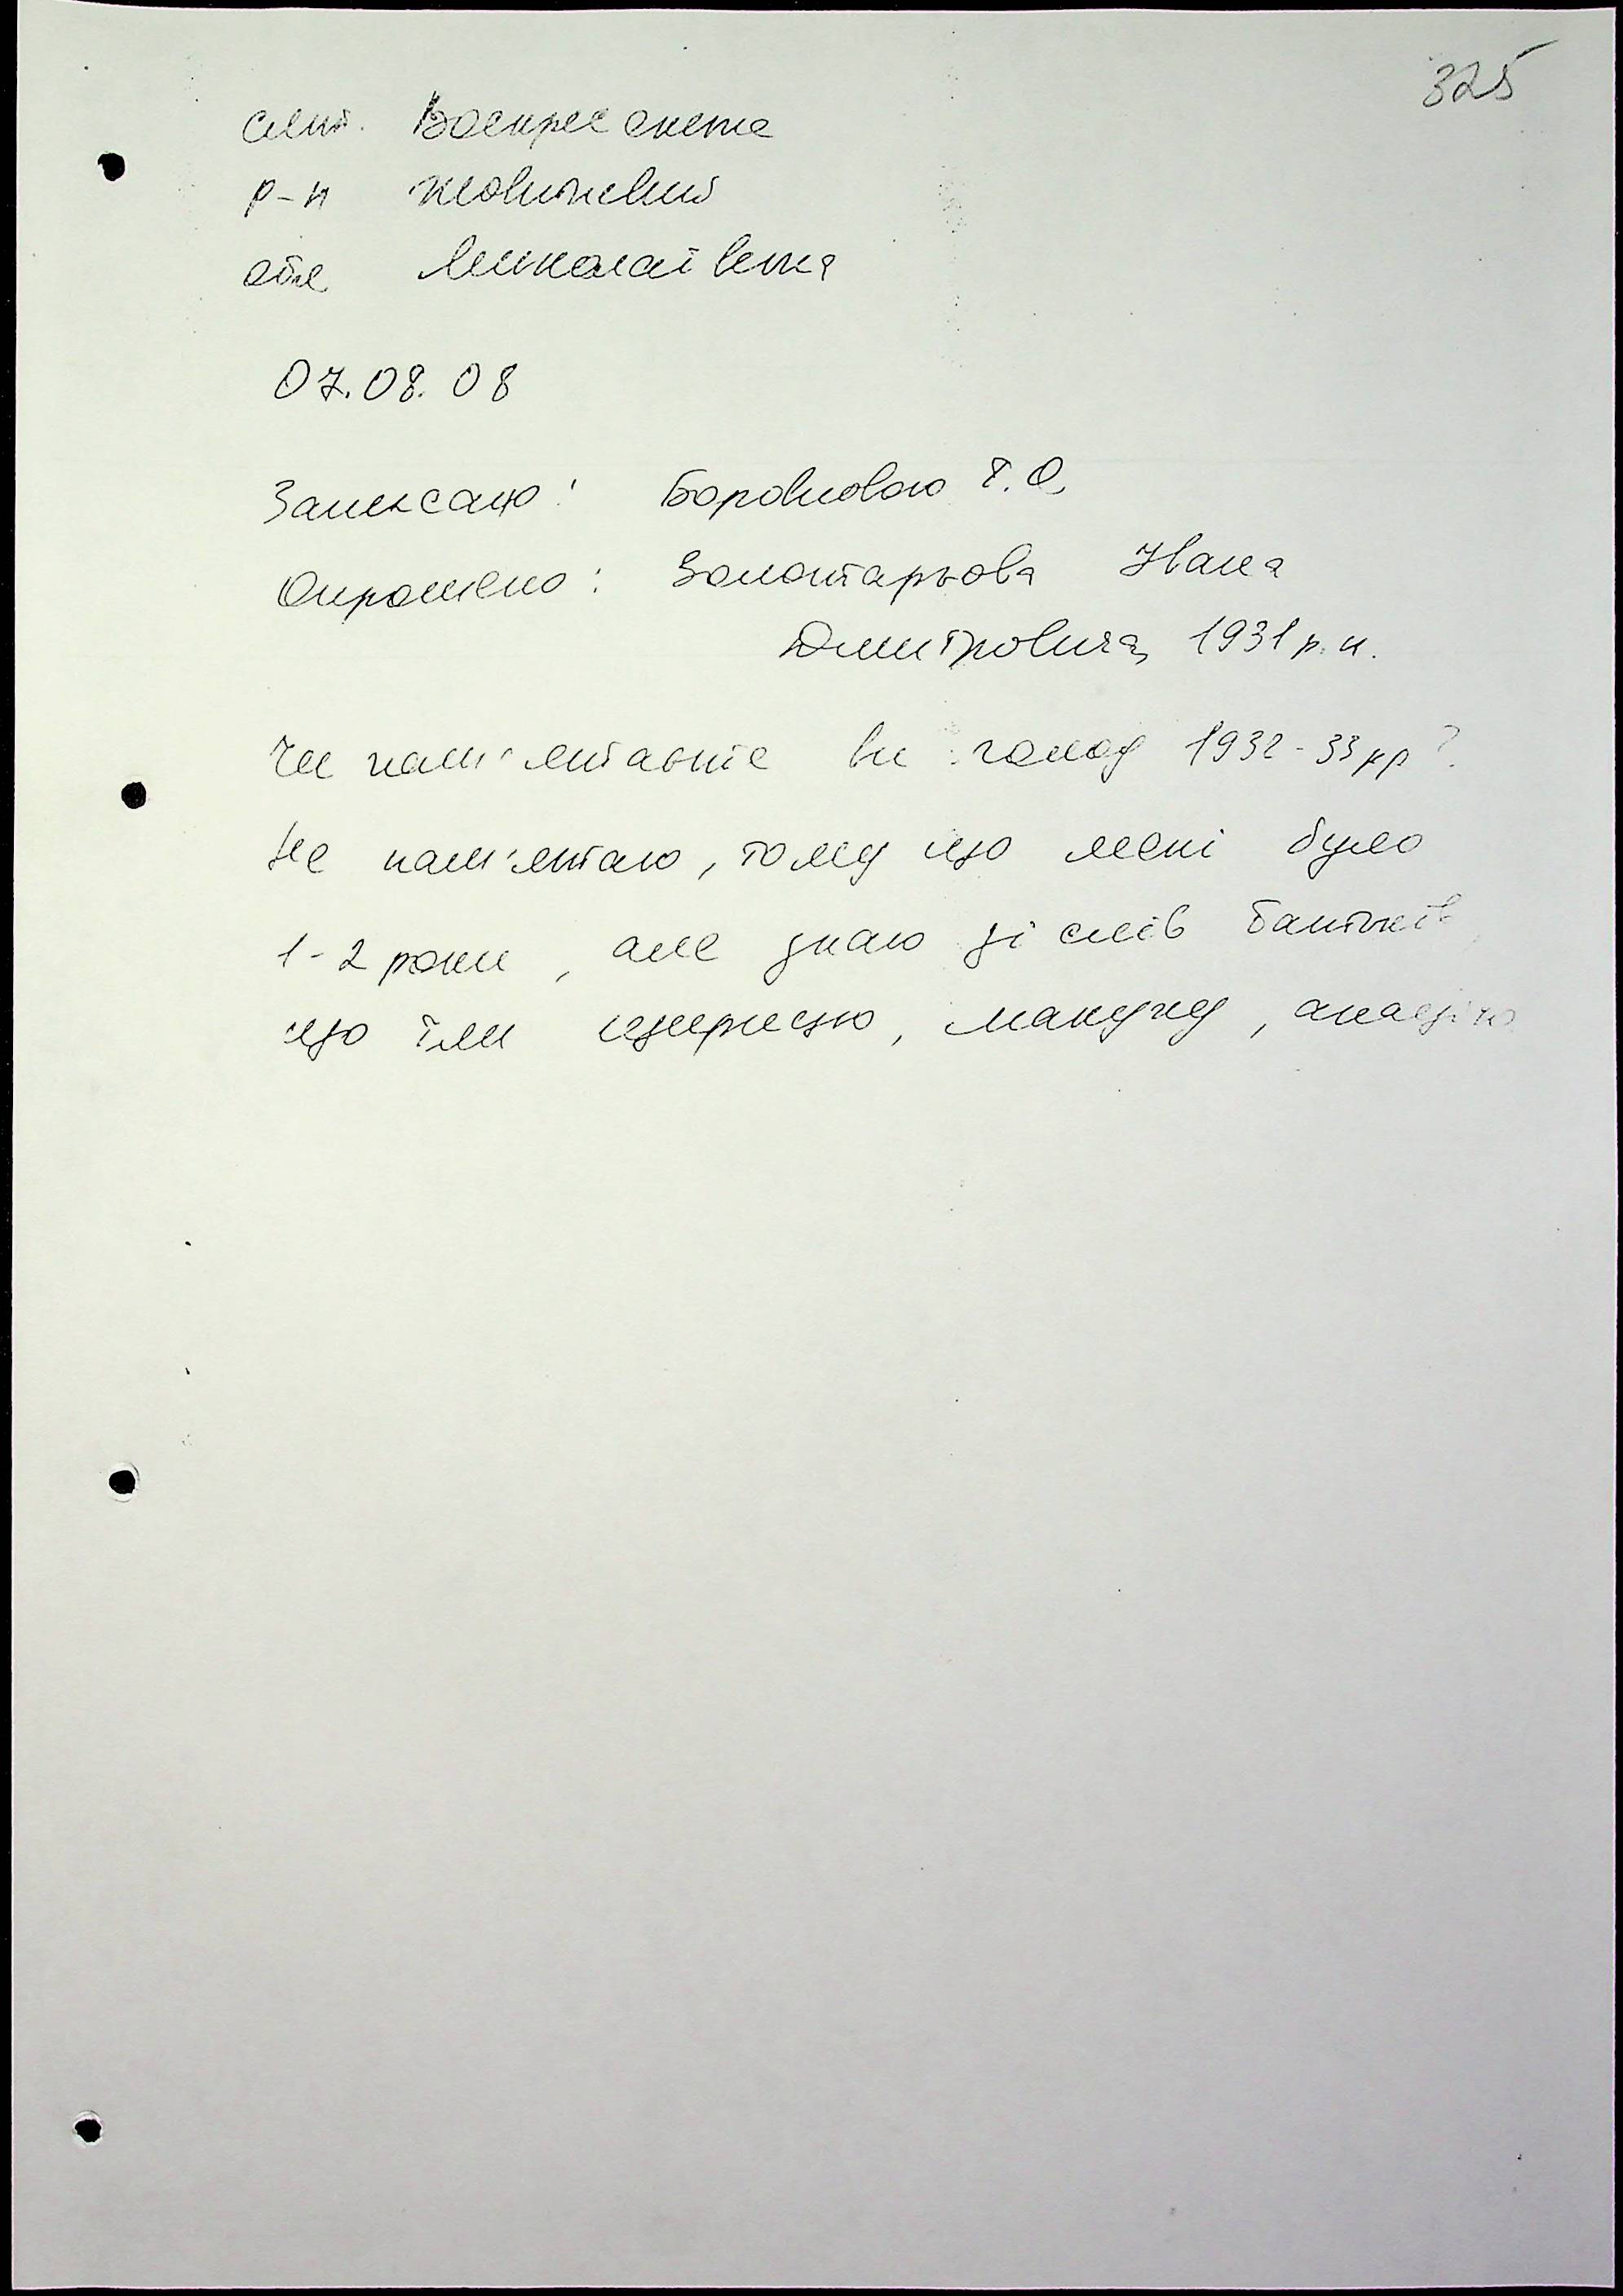 325
смт. Воскресенське
р-н Жовтневий
обл Миколаївська
07.08.08
Записано: Боровковою Т.О.
Опрошено: Золотарьова Івана
Дмитровича, 1931 р.н.
Чи пам'ятаєте ви голод 1932-33 рр?
Не пам'ятаю, тому що мені було
1-2 роки, але знаю зі слів батьків,
що їли щирицю, макуху, акацію